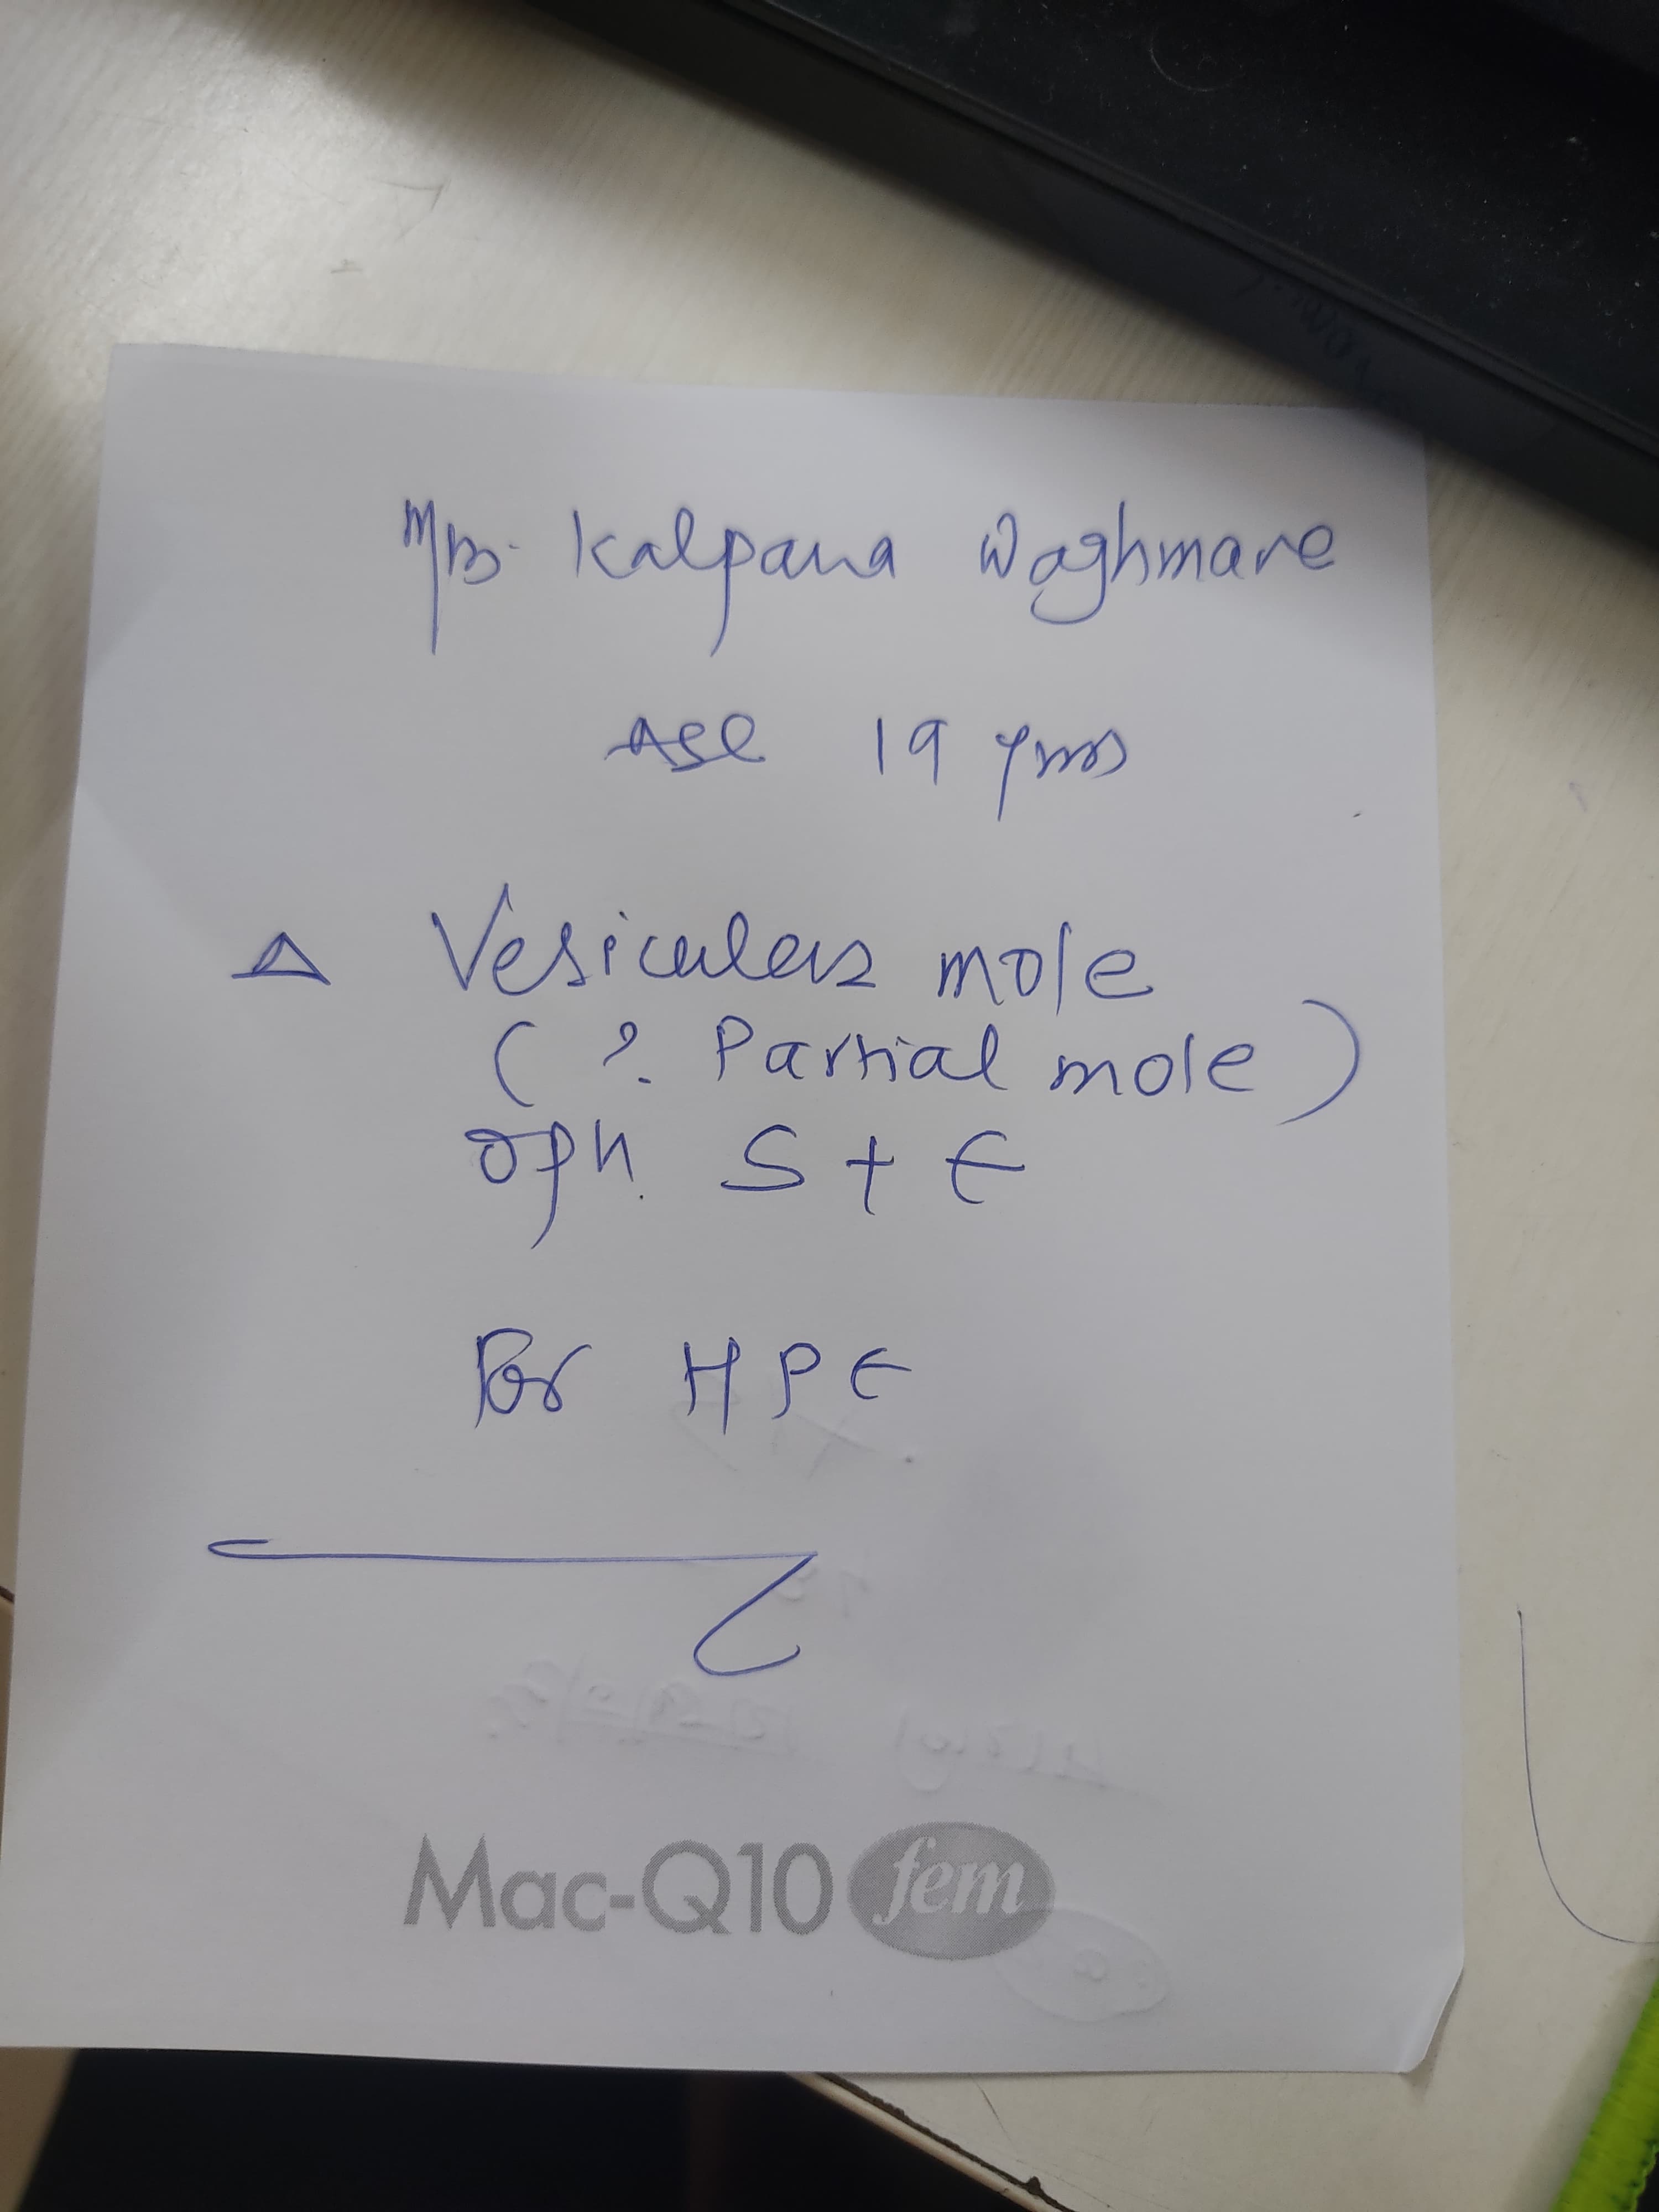 Mrs. Kalpana Waghmare
Age 19 yrs
Δ Vesicular mole
(? Partial mole)
Opn. S + E
For HPE
Mac-Q10 fem